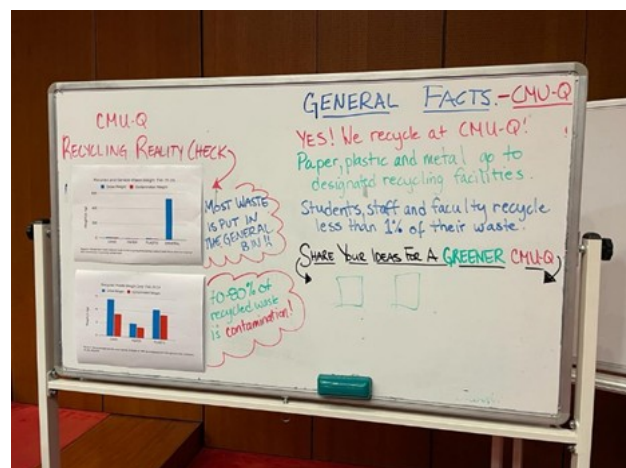 CMU-Q
RECYCLING REALITY CHECK
MOST WASTE
IS PUT IN
THE GENERAL
BIN!!
70-80% of
recycled waste
is contamination!
GENERAL FACTS.-CMU-Q
YES! We recycle at CMU-Q!
Paper, plastic and metal go to
designated recycling facilities.
Students, staff and faculty recycle
less than 1% of their waste.
SHARE YOUR IDEAS FOR A GREENER CMU-Q